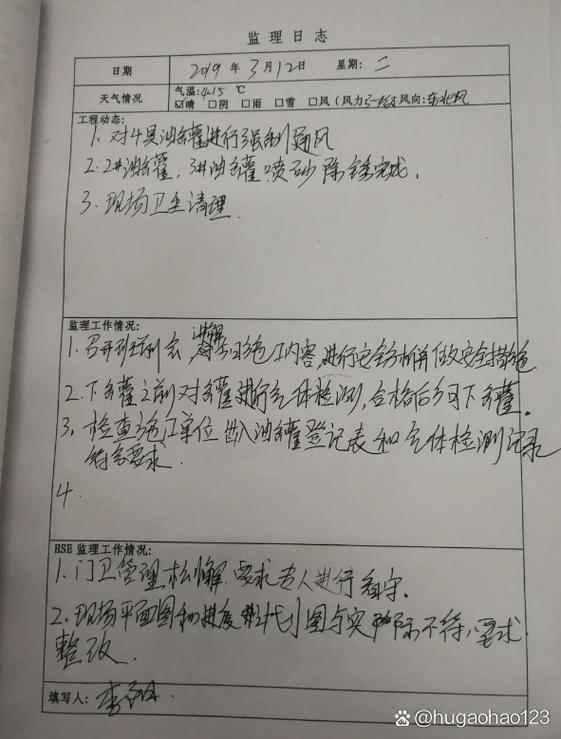 监理日志
日期 2019年3月12日 星期:二
天气情况 气温:4-15 ℃
☑晴 □阴 □雨 □雪 □风(风力5-6级 风向:东北风
工程动态:
1. 对4具油罐进行强制通风
2. 2#油罐,3#油罐喷砂除锈完成.
3. 现场卫生清理.
监理工作情况:
1. 召开班前会,讲解当日施工内容,进行安全分析并做安全措施
2. 下罐之前对罐进行气体检测,合格后可下罐.
3. 检查施工单位出入油罐登记表和气体检测记录
符合要求.
4
HSE 监理工作情况:
1. 门卫管理松懈.要求专人进行看守.
2. 现场平面图和进度计划图与实际不符,要求
整改.
填写人: 李
@hugaohao123